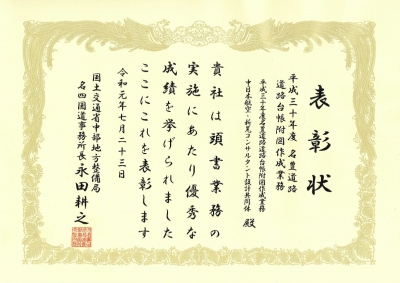 表彰状
平成三十年度 名豊道路
道路台帳附図作成業務
平成三十年度名豊道路道路台帳附図作成業務
中日本航空・新光コンサルタント設計共同体 殿
貴社は頭書業務の
実施にあたり優秀な
成績を挙げられました
ここにこれを表彰します
令和元年七月二十三日
国土交通省中部地方整備局
名四国道事務所長 永田耕之